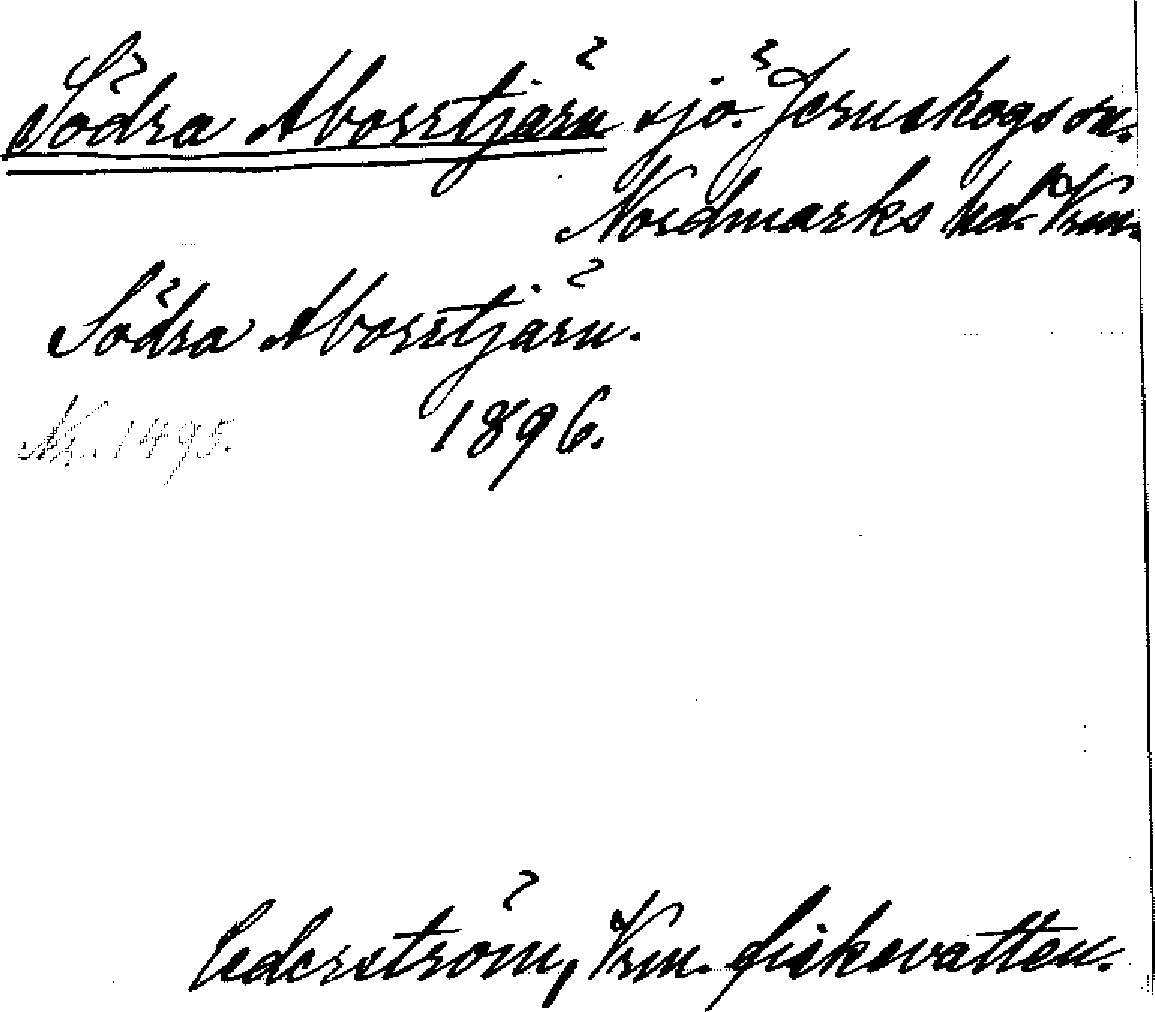 Södra Aborrtjärn sjö. Jernskogs sn.
Nordmarks hd. Vrm.
Södra Aborrtjärn.
1896.
Nr. 1495.
Cederström, Vrm. fiskevatten.